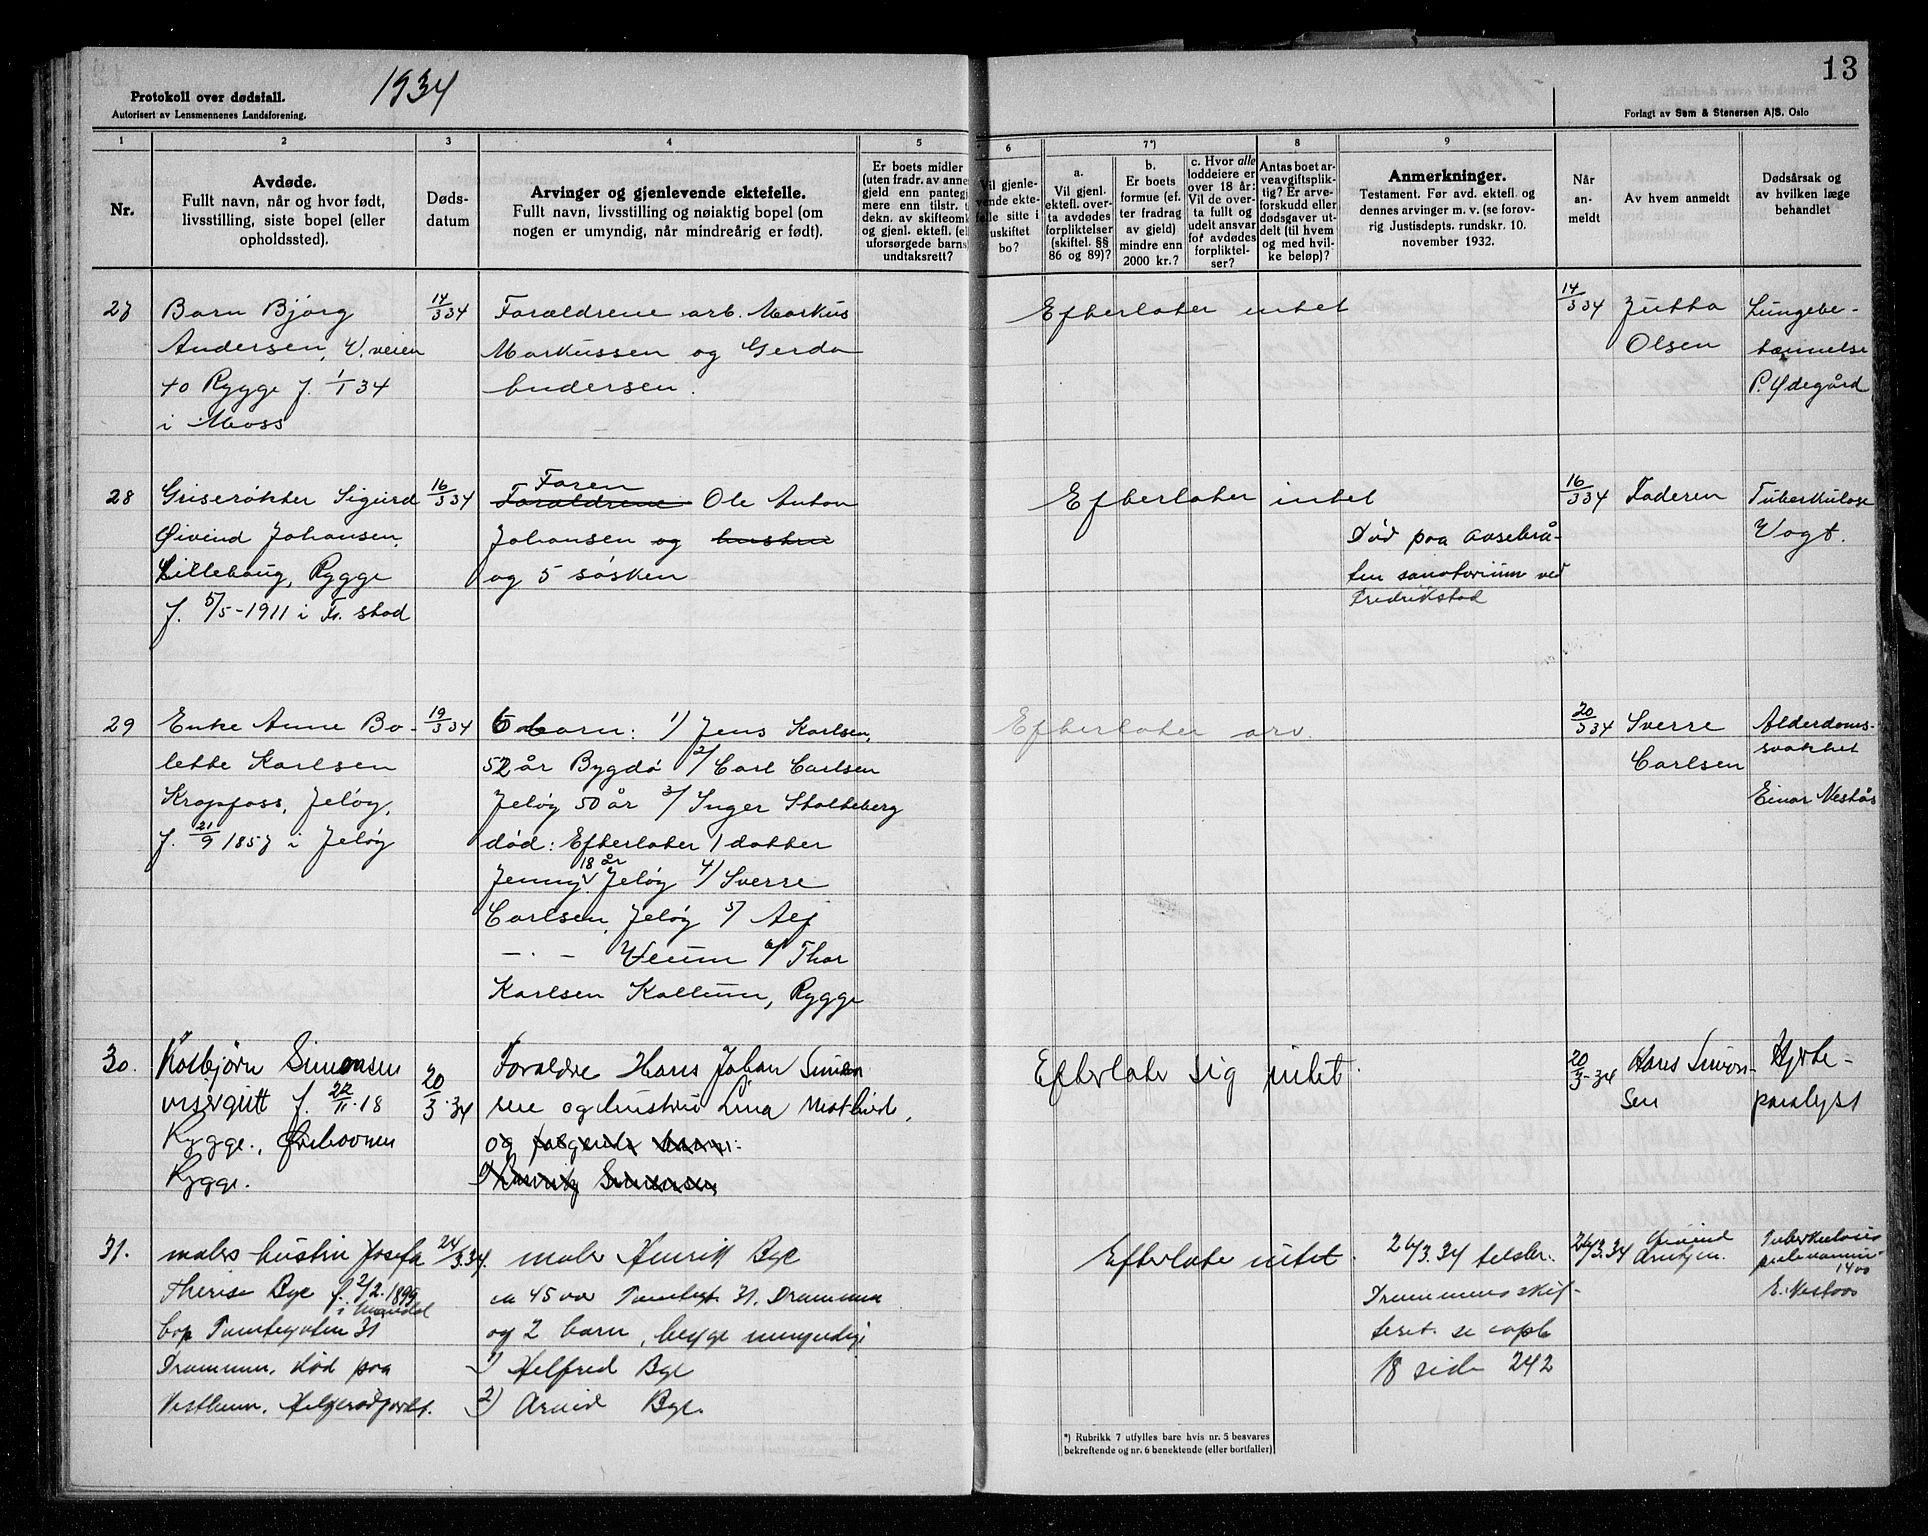 1934
13
Protokoll over dødsfall.
Autorisert av Lensmennenes Landsforening.
Forlagt av Sem & Stenersen A/S. Oslo
1 2 3 4 5 6 7*) 8 9
Nr.
Avdøde.
Fullt navn, når og hvor født,
livsstilling, siste bopel (eller
opholdssted).
Døds-
datum
Arvinger og gjenlevende ektefelle.
Fullt navn, livsstilling og nøiaktig bopel (om
nogen er umyndig, når mindreårig er født).
Er boets midler
(uten fradr. av annen
gjeld enn pantegj
mere enn tilstr. t
dekn. av skifteomk
og gjenl. ektef. (el
uforsørgede barns)
undtaksrett?
Vil gjenle-
vende ekte-
felle sitte i
uskiftet
bo?
a.
Vil gjenl.
ektefl. over-
ta avdødes
forpliktelser
(skiftel. §§
86 og 89)?
b.
Er boets
formue (ef-
ter fradrag
av gjeld)
mindre enn
2000 kr.?
c. Hvor alle
loddeiere er
over 18 år:
Vil de over-
ta fullt og
udelt ansvar
for avdødes
forpliktel-
ser?
Antas boet ar-
veavgiftsplik-
tig? Er arve-
forskudd eller
dødsgaver ut-
delt (til hvem
og med hvil-
ke beløp)?
Anmerkninger.
Testament. Før avd. ektefl. og
dennes arvinger m. v. (se forøv-
rig Justisdepts. rundskr. 10.
november 1932.
Når
an-
meldt
Av hvem anmeldt
Dødsårsak og
av hvilken læge
behandlet
27 Barn Bjørg 14/3 34 Forældrene arb. Markus Efterlater intet 14/3 34 Jutta Lungebe-
Andersen, V. veien Markussen og Gerda Olsen tænnelse
40 Rygge f. 1/1 34 Andersen. P. Ødegård
i Moss
28 Griserøkter Sigurd 16/3 34 Faren Forældrene Ole Anton Efterlater intet 16/3 34 Faderen Tuberkulose
Øivind Johansen, Johansen og hustru Død paa Ossebrå- Vogt.
Lillehaug, Rygge og 5 søsken ten sanatorium ved
f. 5/5-1911 i Fr. stad Fredrikstad
29 Enke Anne Bo- 19/3 34 6 barn: 1/ Jens Karlsen, Efterlater arv. 20/3 34 Sverre Alderdoms-
lette Karlsen 52 år Bygdø 2/ Carl Carlsen Carlsen svakhet
Kropfoss, Jeløy, Jeløy 50 år 3/ Inger Stolteberg Einar Nestås
f. 21/9 1857 i Jeløy død: Efterlater 1 datter
Jenny 18 år Jeløy 4/ Sverre
Carlsen, Jeløy 5/ Alf
— . — Veum 6/ Thor
Karlsen Kallum, Rygge
30. Kolbjørn Simonsen 20/3.34 Foraldre Hans Johan Simon Efterlate sig intet. 20/3-34 Hans Simon- Hjerte-
visergutt f. 22/11.18 sen og hustru Lina Mathilde, sen paralyst
Rygge., og følgende barn:
Rygge. Simonsen
31. malers hustru Josefa 24/3.34. maler Henrik Bye Efterlate intet. 26/3.34 telsbr. 26/3.34 Øivind Tuberkulosis
Therise Bye f. 2/2.1899 ca 45 aar Tomtegt 31. Drammen Drammens skif-
i Mandal
bop Tomtegaten 31 og 2 barn, begge umyndig teret. se copb E. Nestaas
Drammen. død paa 1) Helfred Bye 18 side 242
Vestheim. 2) Arvid Bye.
*) Rubrikk 7 utfylles bare hvis nr. 5 besvares
bekreftende og nr. 6 benektende (eller bortfaller)